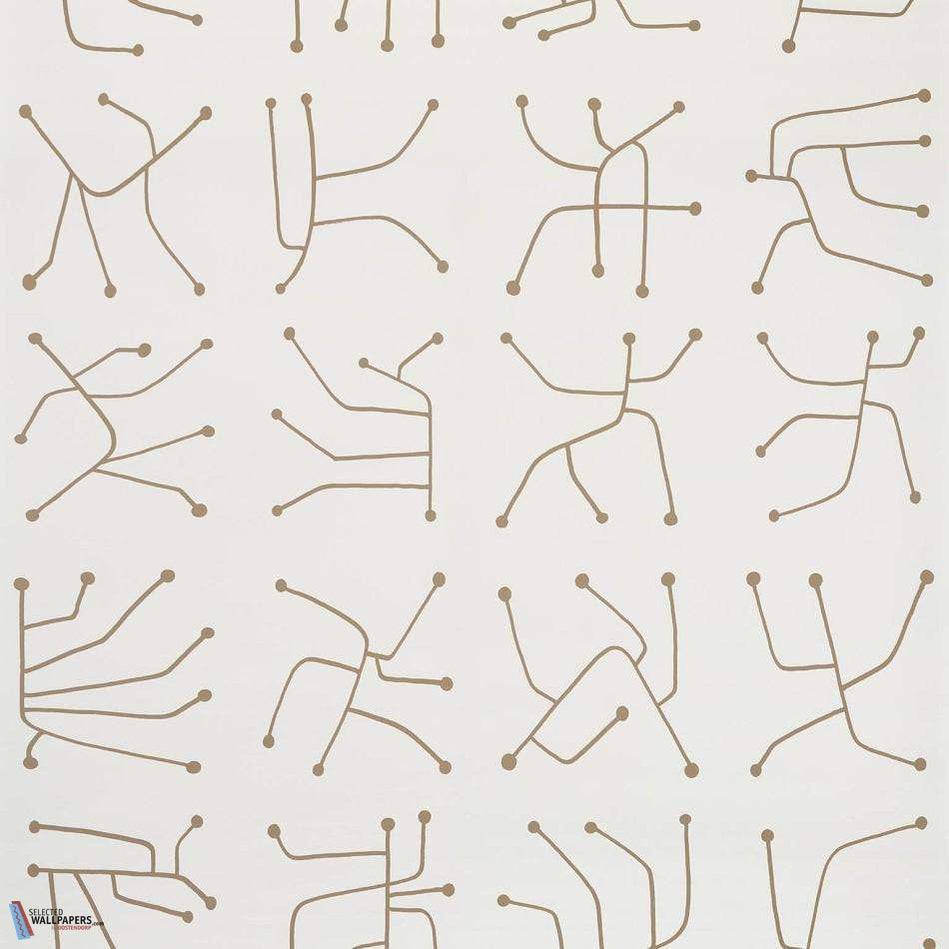 SELECTED
WALLPAPERS.com
by OOSTENDORP